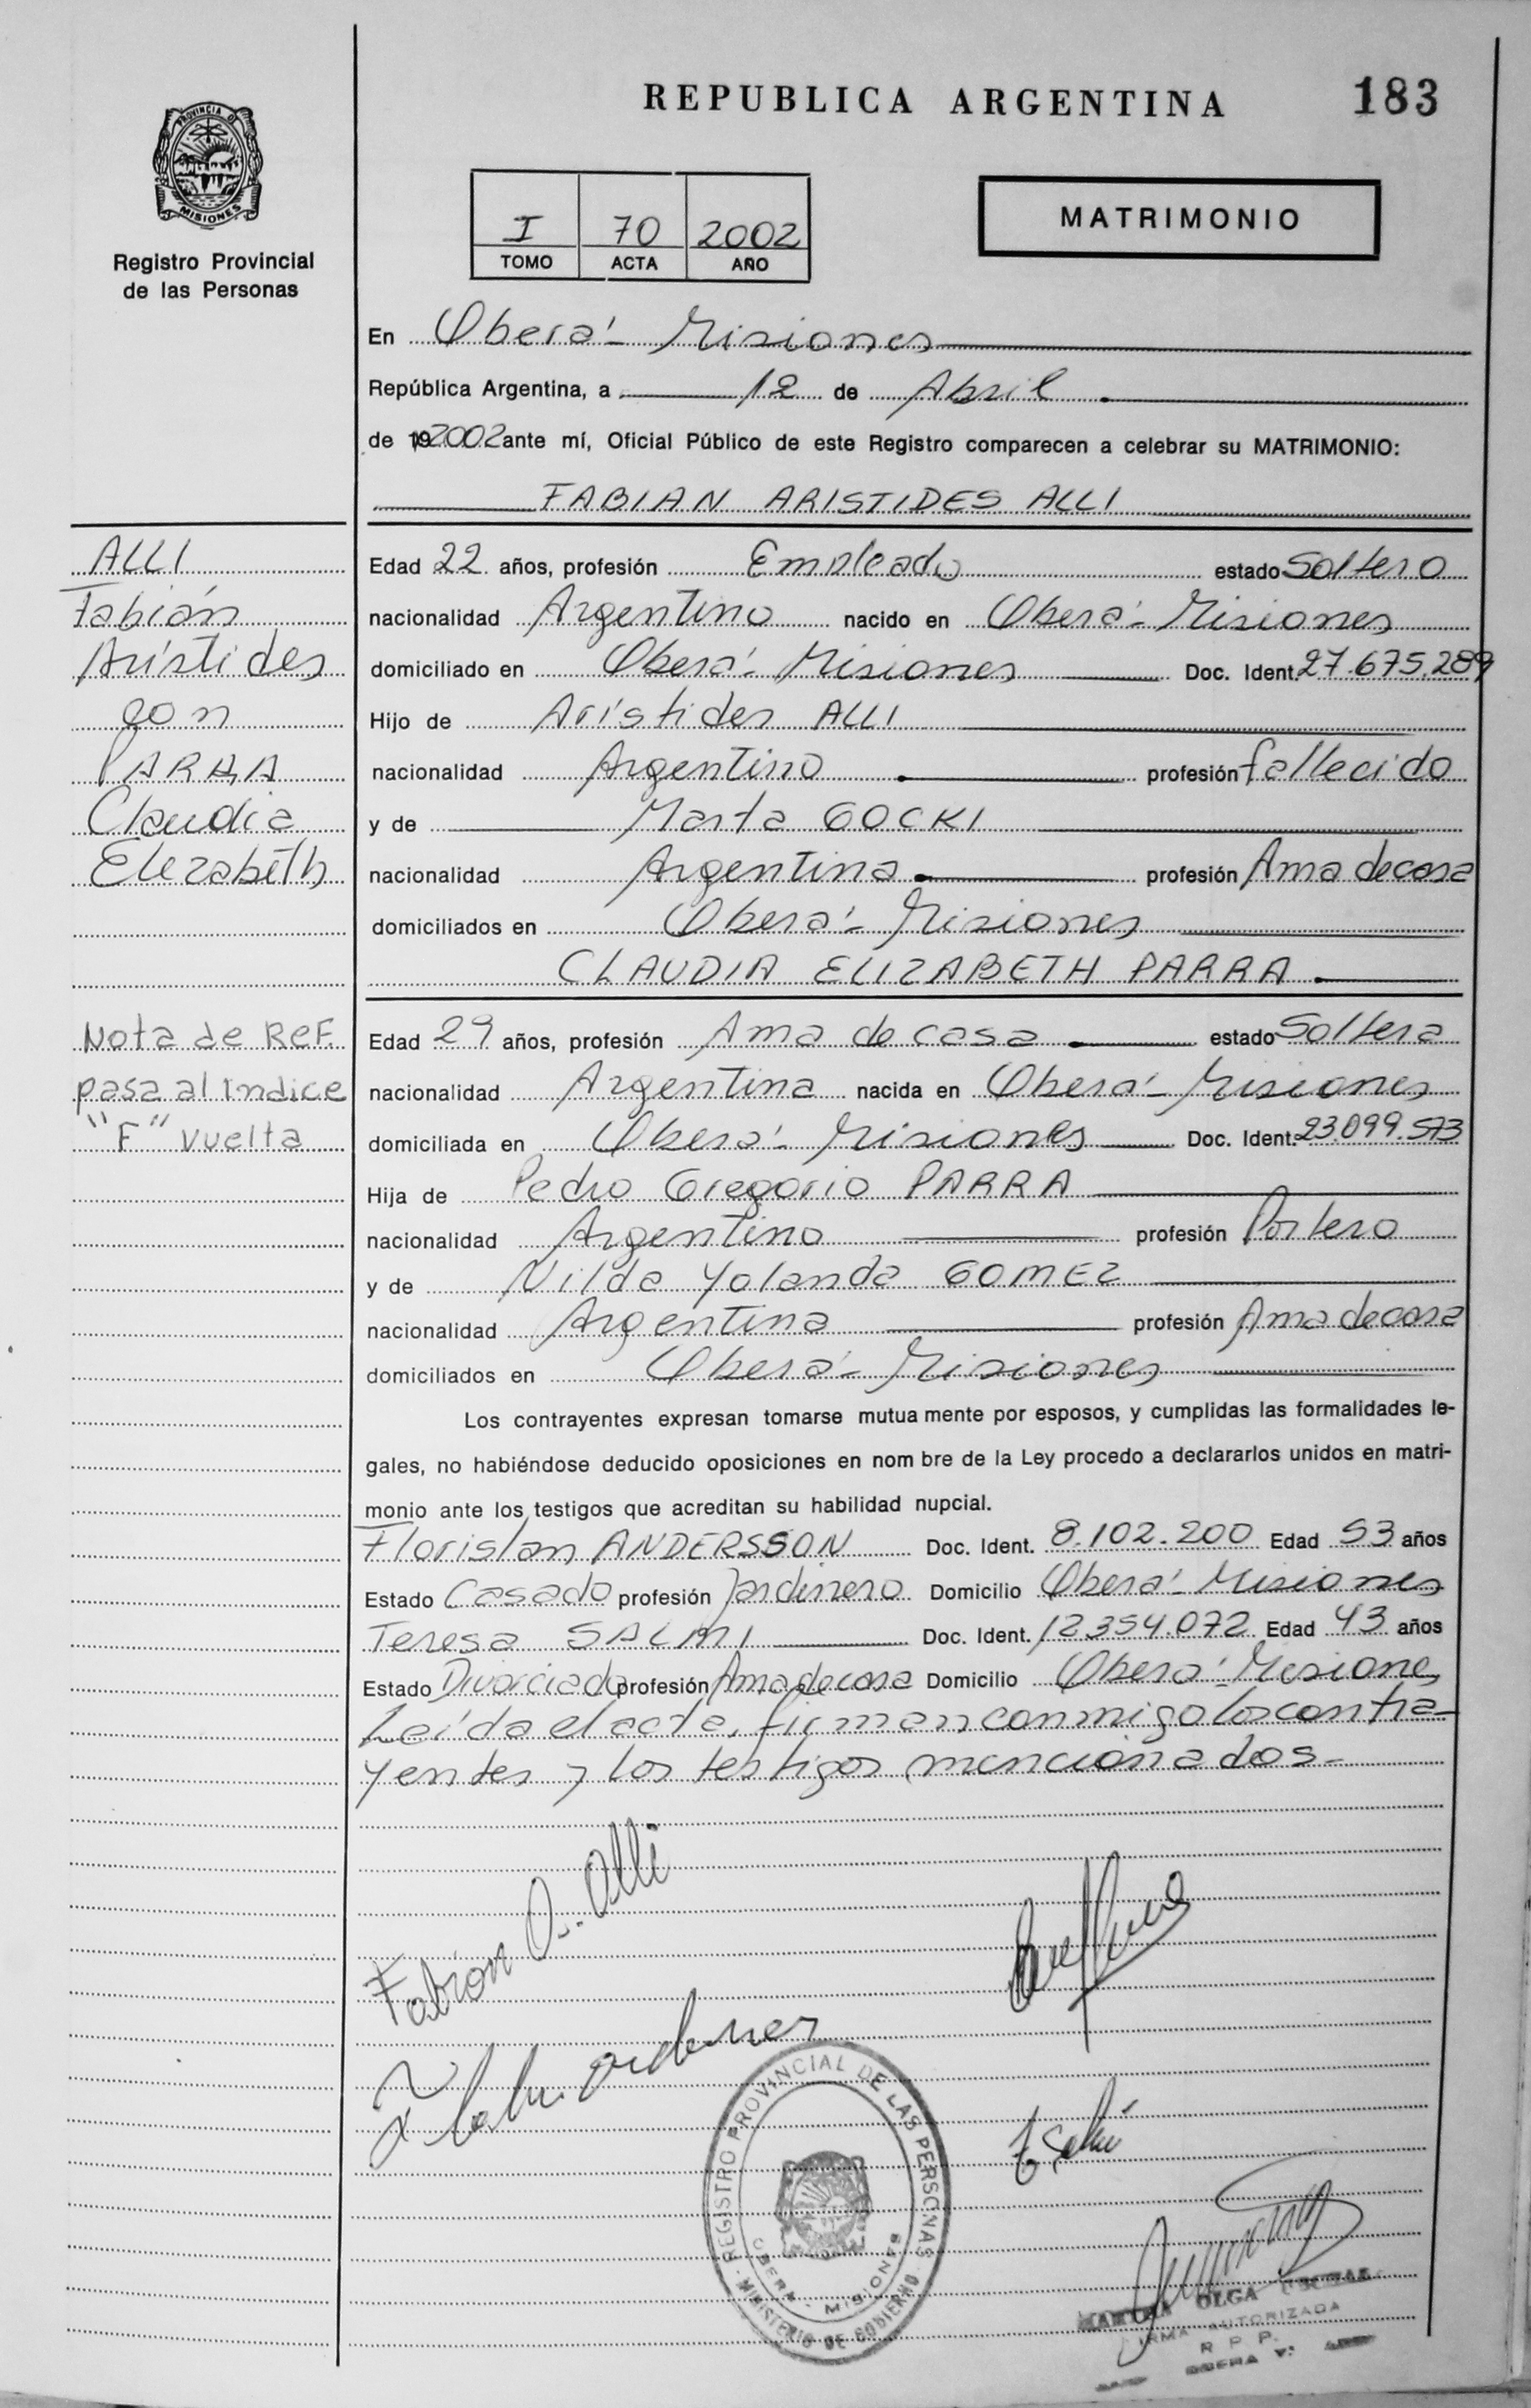 REPUBLICA ARGENTINA 183
PROVINCIA D
MISIONES
Registro Provincial
de las Personas
I 70 2002
TOMO ACTA AÑO
MATRIMONIO
En Oberá - Misiones
República Argentina, a 12 de Abril
de 192002 ante mí, Oficial Público de este Registro comparecen a celebrar su MATRIMONIO:
FABIAN ARISTIDES ALLI
ALLI
Fabián
Arístides
con
PARRA
Claudia
Elizabeth
Edad 22 años, profesión Empleado estado Soltero
nacionalidad Argentino nacido en Oberá - Misiones
domiciliado en Oberá - Misiones Doc. Ident. 27.675.289
Hijo de Arístides ALLI
nacionalidad Argentino profesión fallecido
y de Marta GOCKI
nacionalidad Argentina profesión Ama de casa
domiciliados en Oberá - Misiones
CLAUDIA ELIZABETH PARRA
Nota de ReF.
pasa al Indice
"F" vuelta
Edad 29 años, profesión Ama de casa estado Soltera
nacionalidad Argentina nacida en Oberá - Misiones
domiciliada en Oberá - Misiones Doc. Ident. 23.099.573
Hija de Pedro Gregorio PARRA
nacionalidad Argentino profesión Portero
y de Nilda Yolanda GOMEZ
nacionalidad Argentina profesión Ama de casa
domiciliados en Oberá - Misiones
Los contrayentes expresan tomarse mutua mente por esposos, y cumplidas las formalidades le-
gales, no habiéndose deducido oposiciones en nom bre de la Ley procedo a declararlos unidos en matri-
monio ante los testigos que acreditan su habilidad nupcial.
Floristan ANDERSSON Doc. Ident. 8.102.200 Edad 53 años
Estado Casado profesión Jardinero Domicilio Oberá - Misiones
Teresa SALMI Doc. Ident. 12.354.072 Edad 43 años
Estado Divorciada profesión Ama de casa Domicilio Oberá - Misiones
Leída el acta, firman conmigo los contra-
yentes y los testigos mencionados -
Fabian A. Alli
REGISTRO PROVINCIAL DE LAS PERSONAS
OBERA - MISIONES
MINISTERIO DE GOBIERNO
OLGA
FIRMA AUTORIZADA
R P P.
OBERA